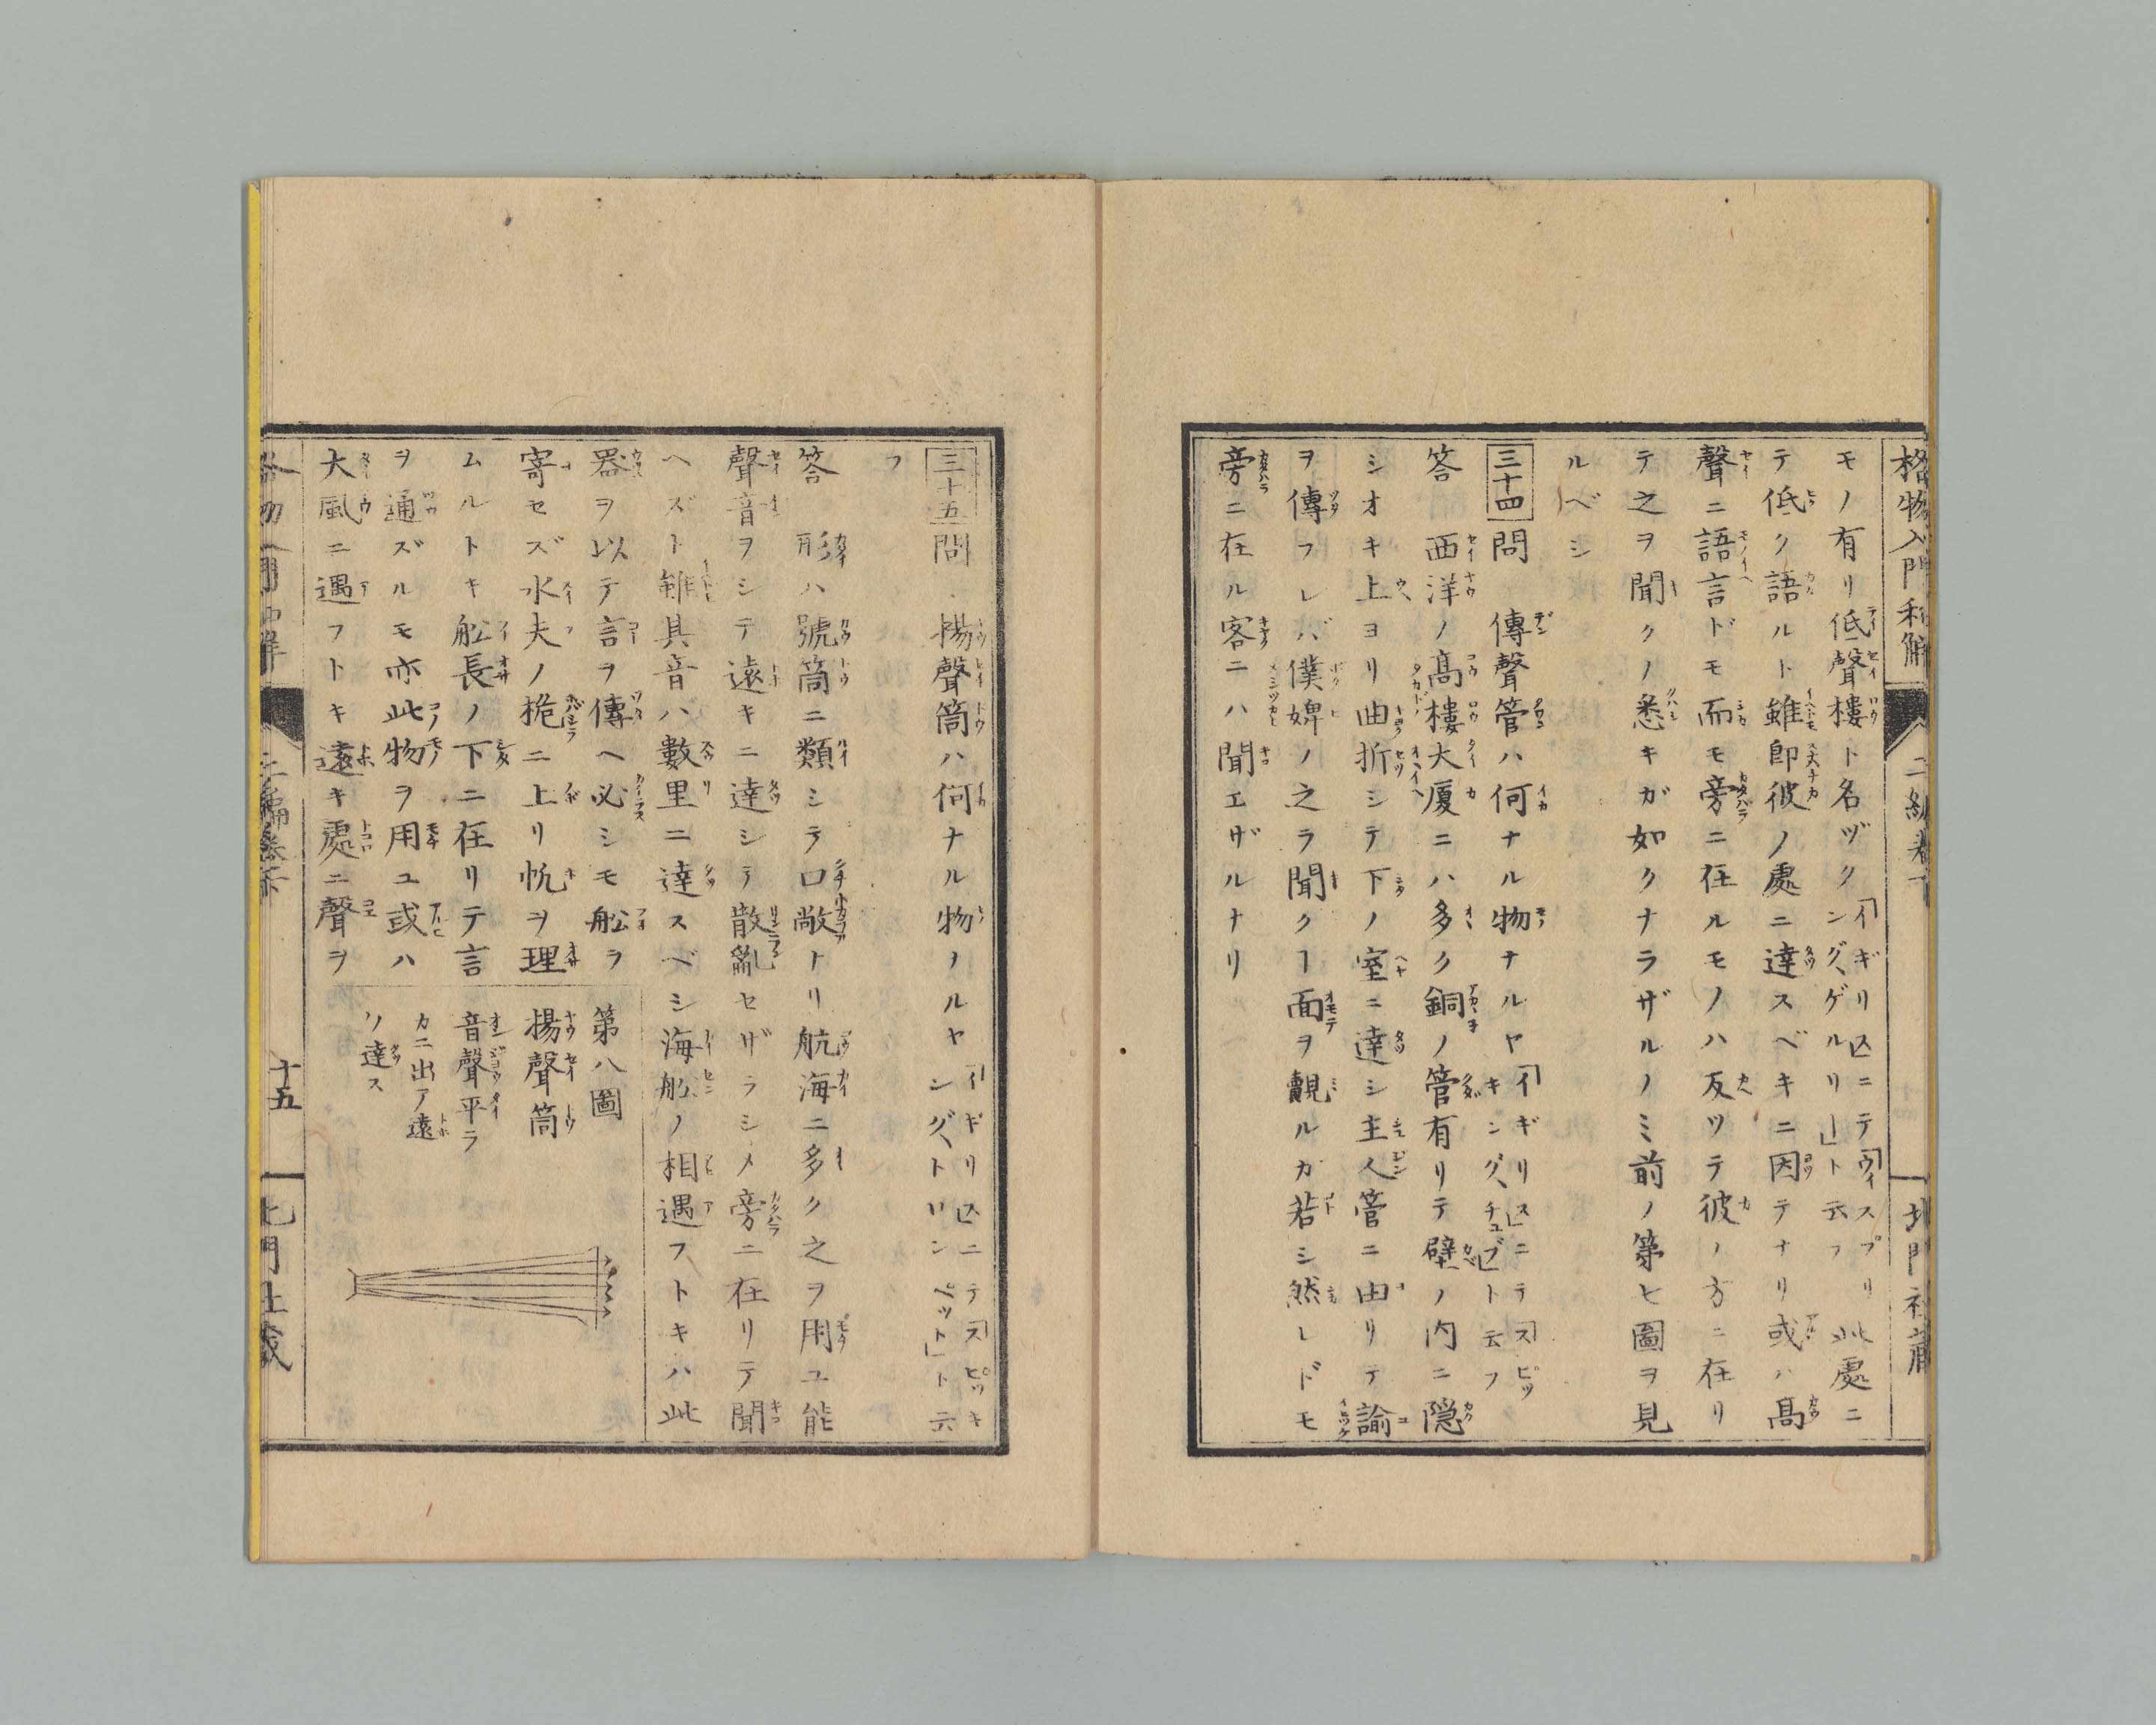 格物入門和解
二編巻下
北門社蔵
モノ有リ低聲樓ト名ヅク「イギリスニテウィスプリングゲルリート云フ此處ニ
テ低ク語ルト雖即彼ノ處ニ達スベキニ因テナリ或ハ髙
聲ニ語言ドモ而モ旁ニ在ルモノハ反ツテ彼ノ方ニ在リ
テ之ヲ聞クノ悉キガ如クナラザルノミ前ノ第七圖ヲ見
ルベシ
三十四問 傳聲管ハ何ナル物ナルヤ「イギリスニテスピッキングチュブト云フ
答 西洋ノ髙樓大厦ニハ多ク銅ノ管有リテ壁ノ内ニ隠
シオキ上ヨリ曲折シテ下ノ室ニ達シ主人管ニ由リテ諭
ヲ傳フレバ僕婢ノ之ヲ聞クヿ面ヲ覿ルガ若シ然レドモ
旁ニ在ル客ニハ聞エザルナリ
三十五問 揚聲筒ハ何ナル物ナルヤ「イギリスニテスピッキングトロンペット」ト云
フ
答 形ハ號筒ニ類シテ口敞トリ航海ニ多ク之ヲ用ユ能
聲音ヲシテ遠キニ達シテ散亂セザラシメ旁ニ在リテ聞
ヘズト雖其音ハ數里ニ達スベシ海船ノ相遇フトキハ此
器ヲ以テ言ヲ傳ヘ必シモ船ヲ
寄セズ水夫ノ桅ニ上リ帆ヲ理
ムルトキ船長ノ下ニ在リテ言
ヲ通ズルモ亦此物ヲ用ユ或ハ
大風ニ遇フトキ遠キ處ニ聲ヲ
第八圖
揚聲筒
音聲平ラ
カニ出テ遠
ク達ス
格物入門和解
二編巻下
十五
北門社蔵